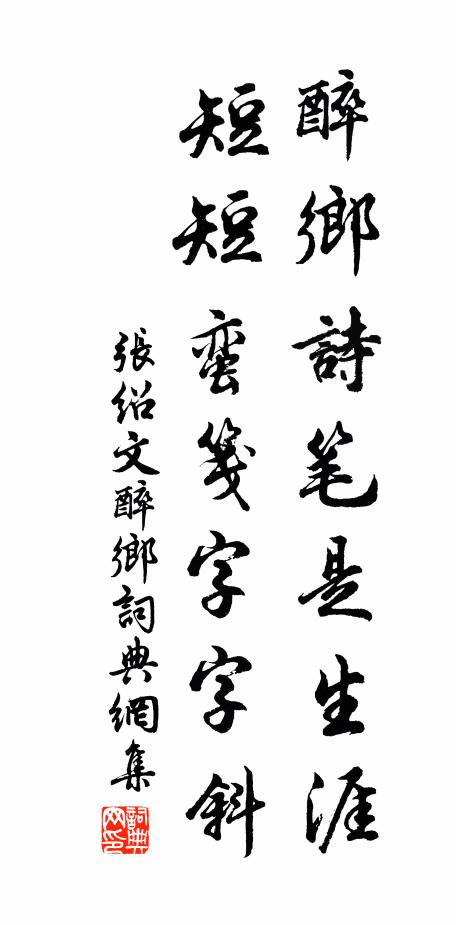 醉鄉詩笔是生涯
短短蛮箋字字斜
張紹文醉鄉詞典網集
詞典网印